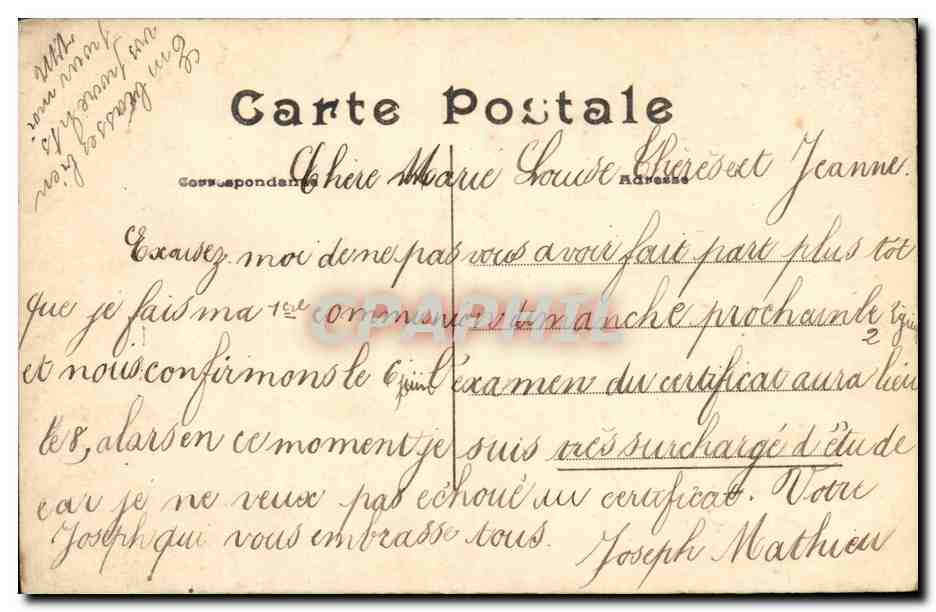 Embrassez bien
vos parents
pour moi
Carte Postale
Correspondance
Adresse
Chère Marie Louise Thérèse et Jeanne.
Excusez moi de ne pas vous avoir fait part plus tôt
que je fais ma 1ère communion dimanche prochain le 2 juin
et nous confirmons le 6 juin l'examen du certificat aura lieu
le 8, alors en ce moment je suis très surchargé d'étude
car je ne veux pas échoué au certificat. Votre
Joseph qui vous embrasse tous.
Joseph Mathieu
CPAPHIL